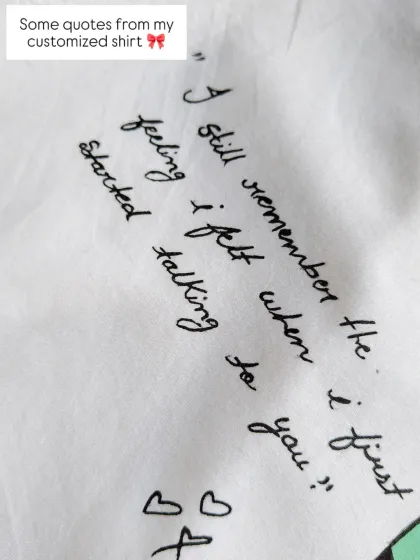 Some quotes from my
customized shirt 🎀
"I still remember the
feeling i felt when i first
started talking to you"